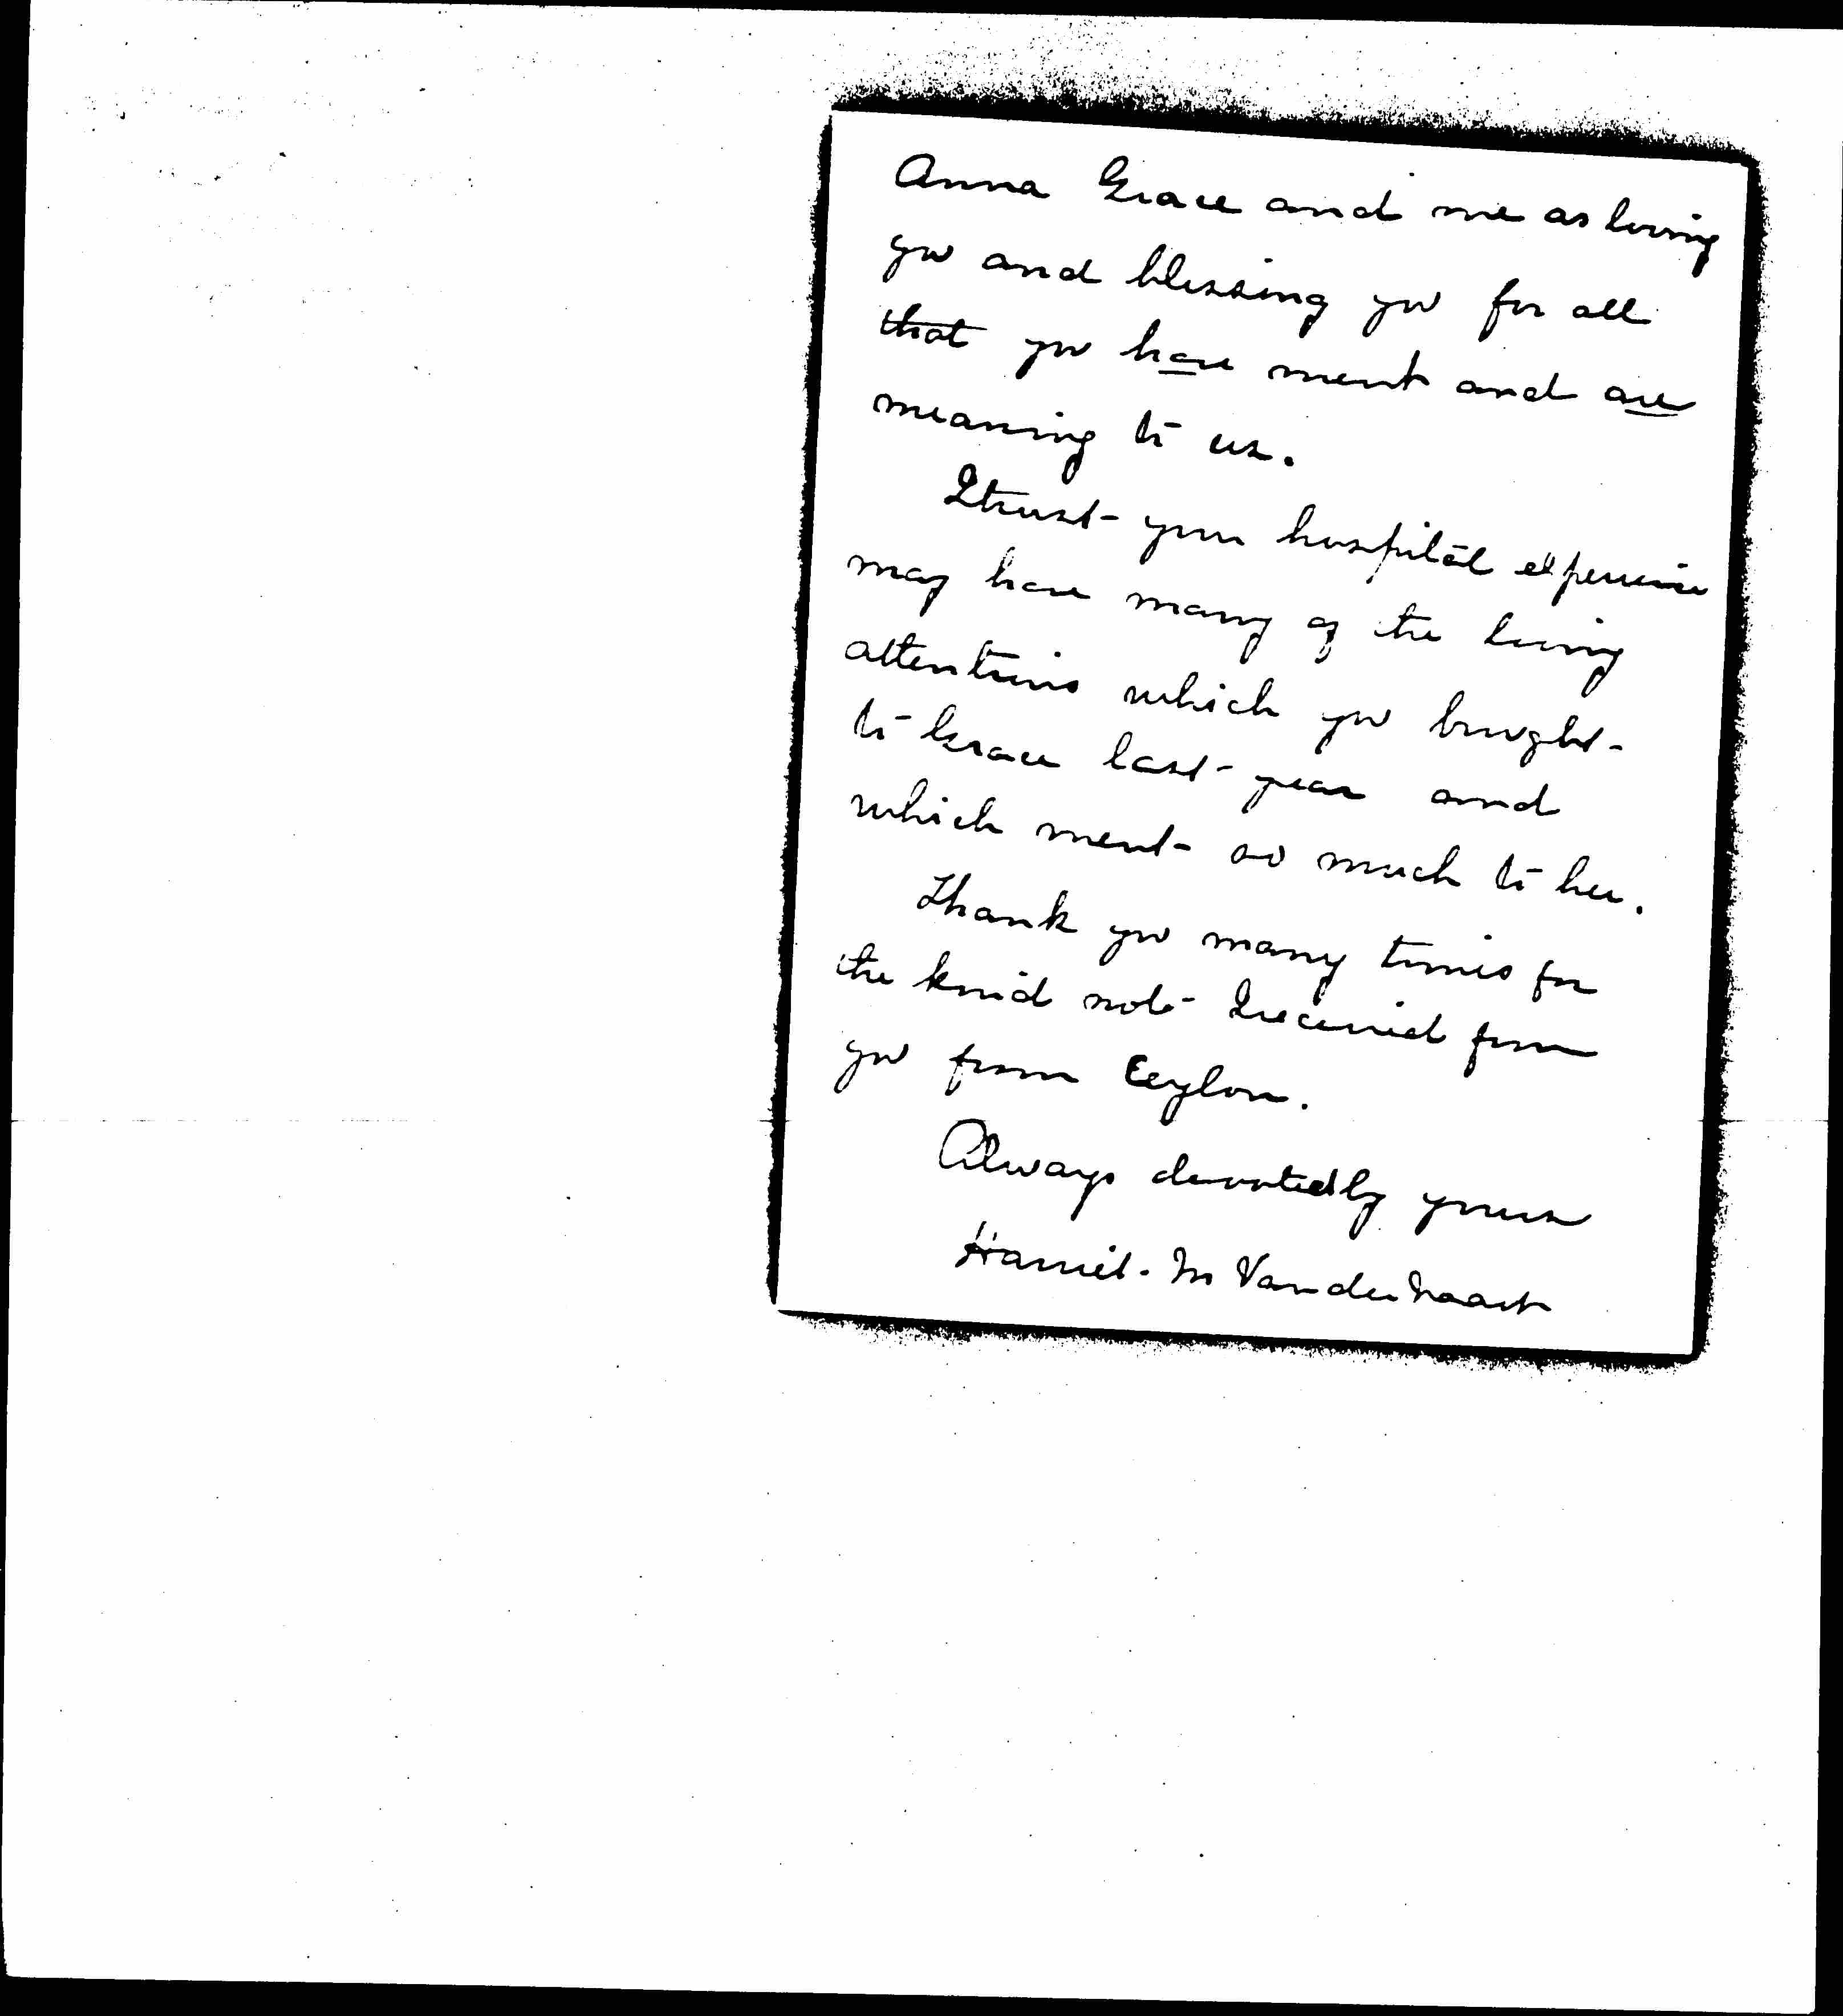 Anna Grace and me as loving
you and blessing you for all
that you have ment and are
meaning to us.
I trust your hospital experience
may have many of the loving
attentions which you brought
to Grace last year and
which ment so much to her.
Thank you many times for
the kind note I received from
you from Ceylon.
Always devotedly yours
Harriet M Vander Vaart